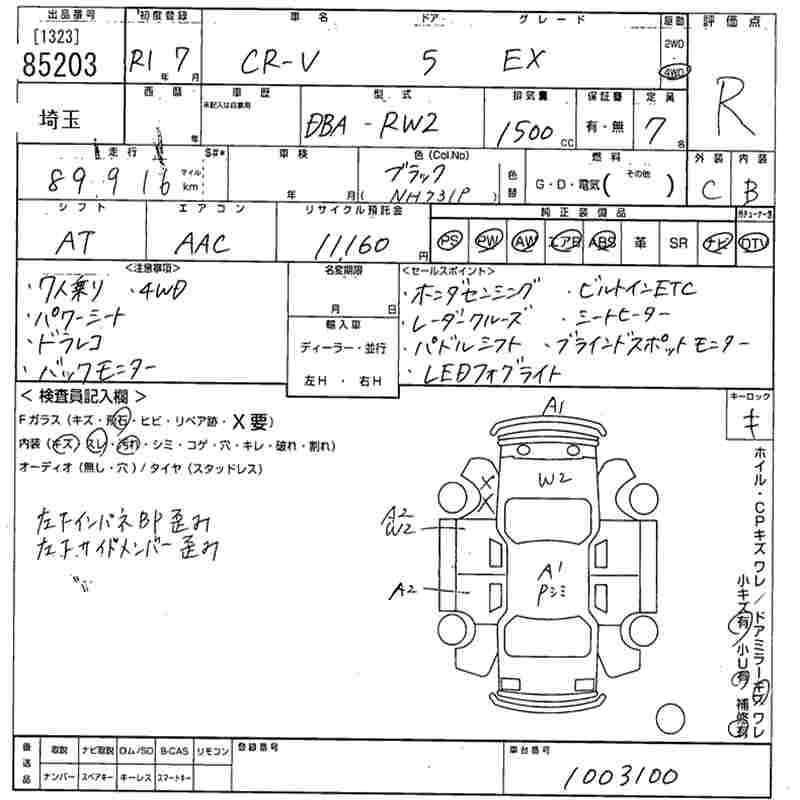 出品番号 初度登録 車名 ドア グレード 駆動 評価点
[1323]
85203 R1年 7月 CR-V 5 EX 2WD 4WD R
西暦 年 車歴 未記入は自家用 型式 排気量 保証書 定員
埼玉 DBA-RW2 1500cc 有・無 7名
走行 S#* 車検 色(Col.No) 燃料 外装 内装
89,916 マイル km 年 月 ブラック (NH731P) 色替 G・D・電気(その他) C B
シフト エアコン リサイクル預託金 純正装備品
AT AAC 11,160円 PS PW AW エアB ABS 革 SR ナビ DTV
<注意事項>
・7人乗り ・4WD
・パワーシート
・ドラレコ
・バックモニター
名変期限
月 日
輸入車
ディーラー・並行
左H ・ 右H
<セールスポイント>
・ホンダセンシング ・ビルトインETC
・レーダークルーズ ・シートヒーター
・パドルシフト ・ブラインドスポットモニター
・LEDフォグライト
<検査員記入欄>
Fガラス(キズ・飛石・ヒビ・リペア跡・X要)
内装(キズ・スレ・汚れ・シミ・コゲ・穴・キレ・破れ・割れ)
オーディオ(無し・穴)/タイヤ(スタッドレス)
左下インパネBP歪み
左F.サイドメンバー歪み
キーロック
キ
A1
W2
X
X
A2
W2
A1
Pシミ
A2
ホイル・CPキズワレ/ドアミラーキズワレ
小キズ有 小U有 補修有
後送品 取説 ナビ取説 ロム/SD B-CAS リモコン 登録番号 車台番号
ナンバー スペアキー キーレス スマートキー 1003100